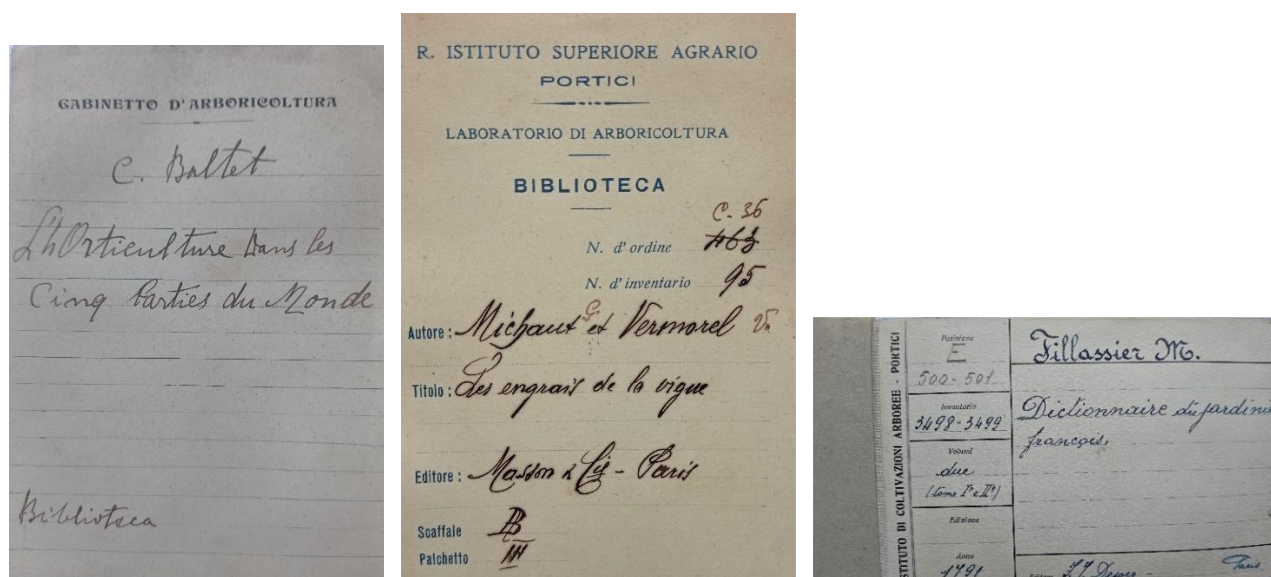 GABINETTO D'ARBORICOLTURA
C. Baltet
L'hOrticulture Dans les
Cinq Parties du Monde
Biblioteca
R. ISTITUTO SUPERIORE AGRARIO
PORTICI
LABORATORIO DI ARBORICOLTURA
BIBLIOTECA
C. 36
N. d'ordine 463
N. d'inventario 95
Autore: Michaut G. et Vermorel V.
Titolo: Les engrais de la vigne
Editore: Masson & Cie - Paris
Scaffale B
Palchetto III
TITUTO DI COLTIVAZIONI ARBOREE - PORTICI
Posizione
E
500-501
Inventario
3498-3499
Volumi
due
(tome Iº e IIº)
Edizione
Anno
1791
Fillassier M.
Dictionnaire du jardini
françois.
Paris